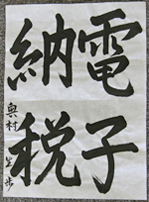 電子
納税
奥村